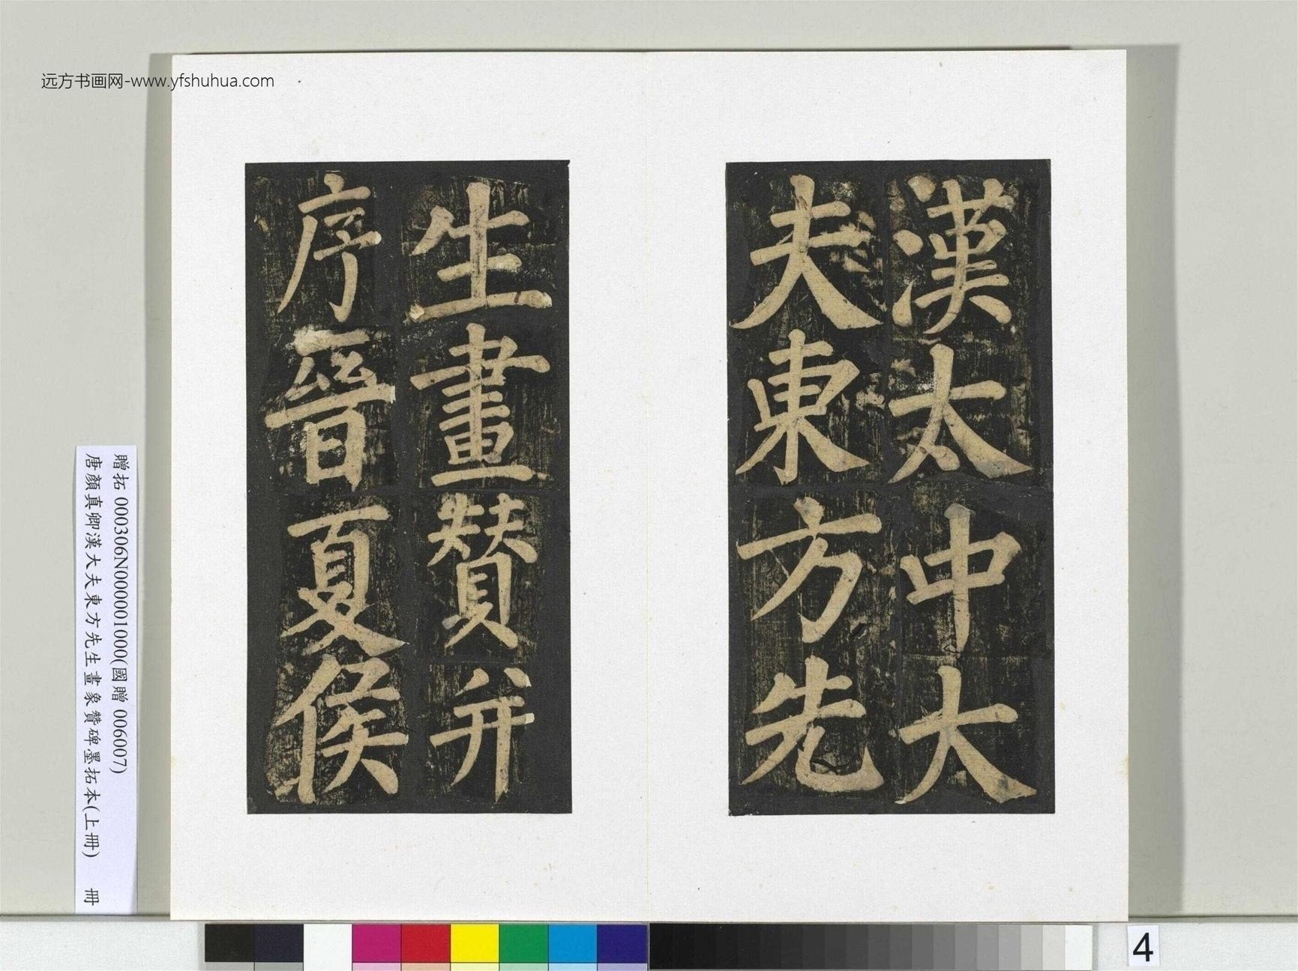 远方书画网-www.yfshuhua.com
漢太中大
夫東方先
生畫贊并
序晉夏侯
贈拓 000306N000001000(國贈 006007)
唐顏真卿漢大夫東方先生畫象贊碑墨拓本(上冊) 冊
4